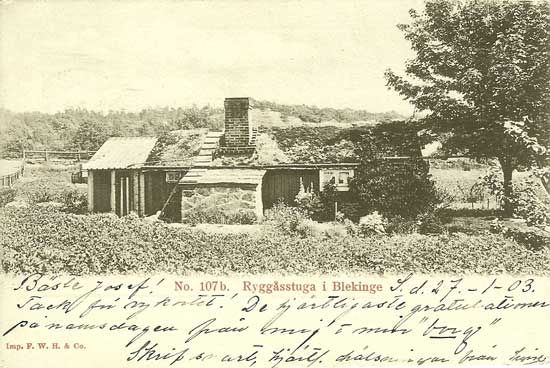 No. 107b. Ryggåsstuga i Blekinge
Bäste Josef! S. d. 27. - 1 - 03.
Tack för vykortet! De hjärtligaste gratulationer
på namsdagen från mig i min "borg"
Imp. F. W. H. & Co.
Skrif snart, hjärtl. hälsningar från